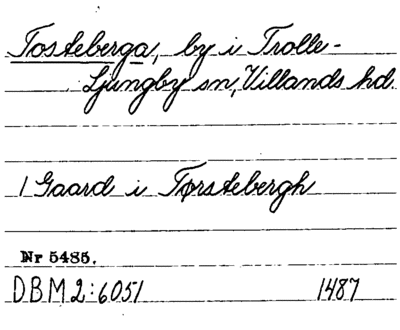 Tosteberga, by i Trolle-
Ljungby sn, Villands hd.
1 Gaard i Tørstebergh
Nr 5485.
DBM 2:6051 1487